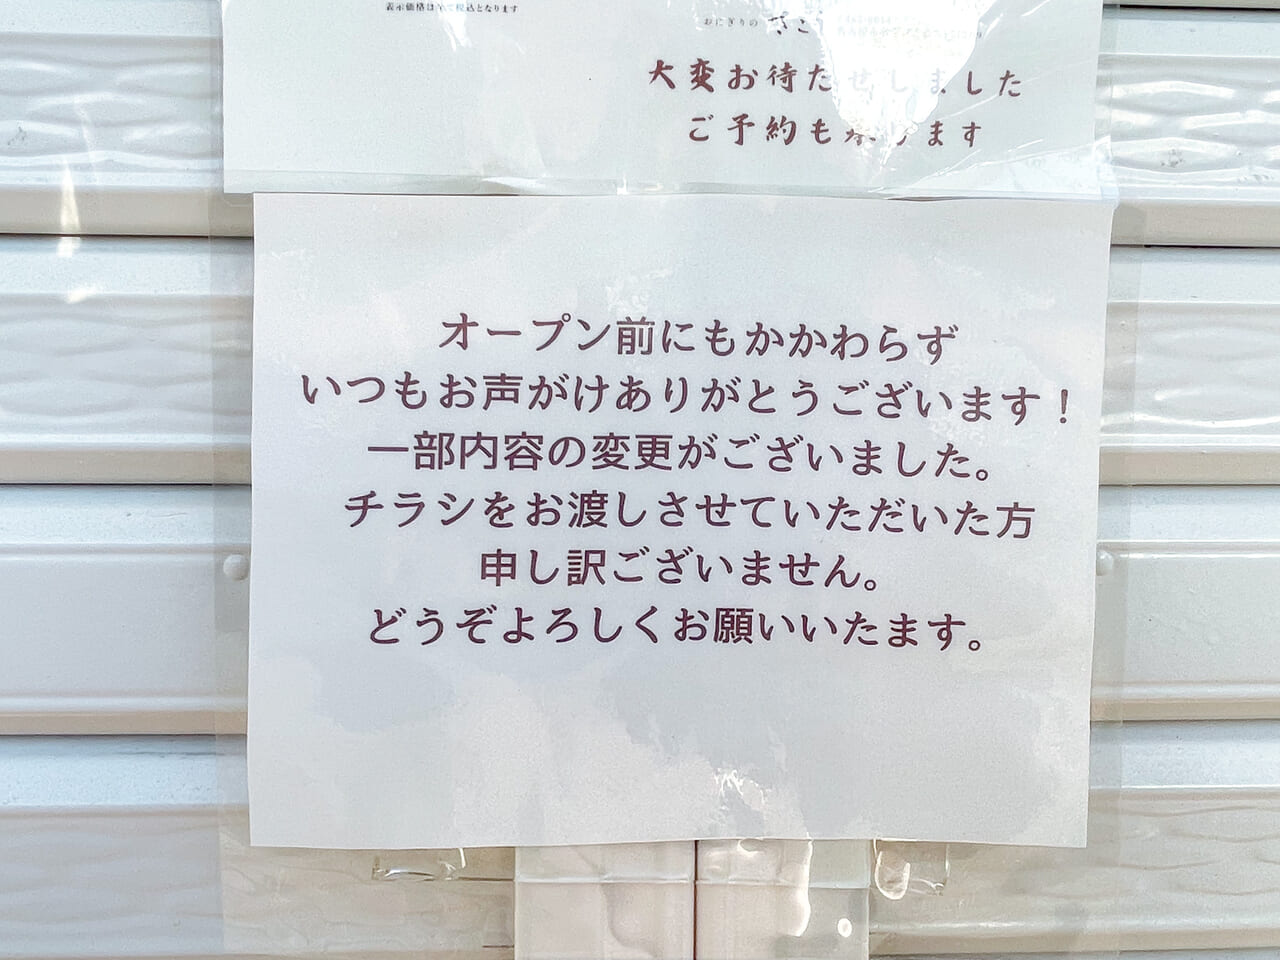 表示価格は全て税込となります
おにぎりの
大変お待たせしました
ご予約も承ります
オープン前にもかかわらず
いつもお声がけありがとうございます！
一部内容の変更がございました。
チラシをお渡しさせていただいた方
申し訳ございません。
どうぞよろしくお願いいたます。